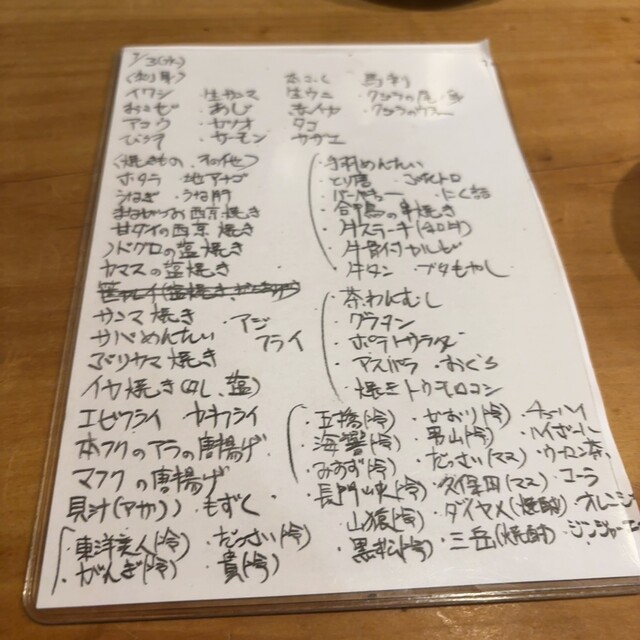 7/3(水)
(刺身)
イワシ 生サンマ 生ウニ 馬刺
おこぜ ・あじ ・赤イカ
アコウ ・カツオ タコ
・サーモン サザエ
(焼きもの、その他)
ホタテ ・地アナゴ
うなぎ うな肝
まながつお西京焼き
甘ダイの西京焼き
ノドグロの塩焼き
ヤマメの塩焼き
サンマ焼き ・アジ
サバめんたい フライ
ぶりカマ焼き
イカ焼き(タレ、塩)
エビフライ カキフライ
本フグのアラの唐揚げ
マフグの唐揚げ
貝汁(アサリ) もずく
・東洋美人(冷) ・だっさい(冷)
・がんぎ(冷) ・貴(冷)
・手羽めんたい
・牛ステーキ
・牛骨付カルビ
・牛タン ブタもやし
・茶わんむし
・グラタン
・ポテトサラダ
・アスパラ ・おくら
・焼トウモロコシ
・五橋(冷) ・かおり(冷) ・チューハイ
・海響(冷) ・男山(冷) ・ハイボール
・みすず(冷) ・だっさい(マス) ・ウーロン茶
・長門峡(冷) ・久保田(マス) ・コーラ
・山猿(冷) ・ダイヤメ(焼酎) ・オレンジ
・黒松(冷) ・三岳(焼酎) ・ジンジャー